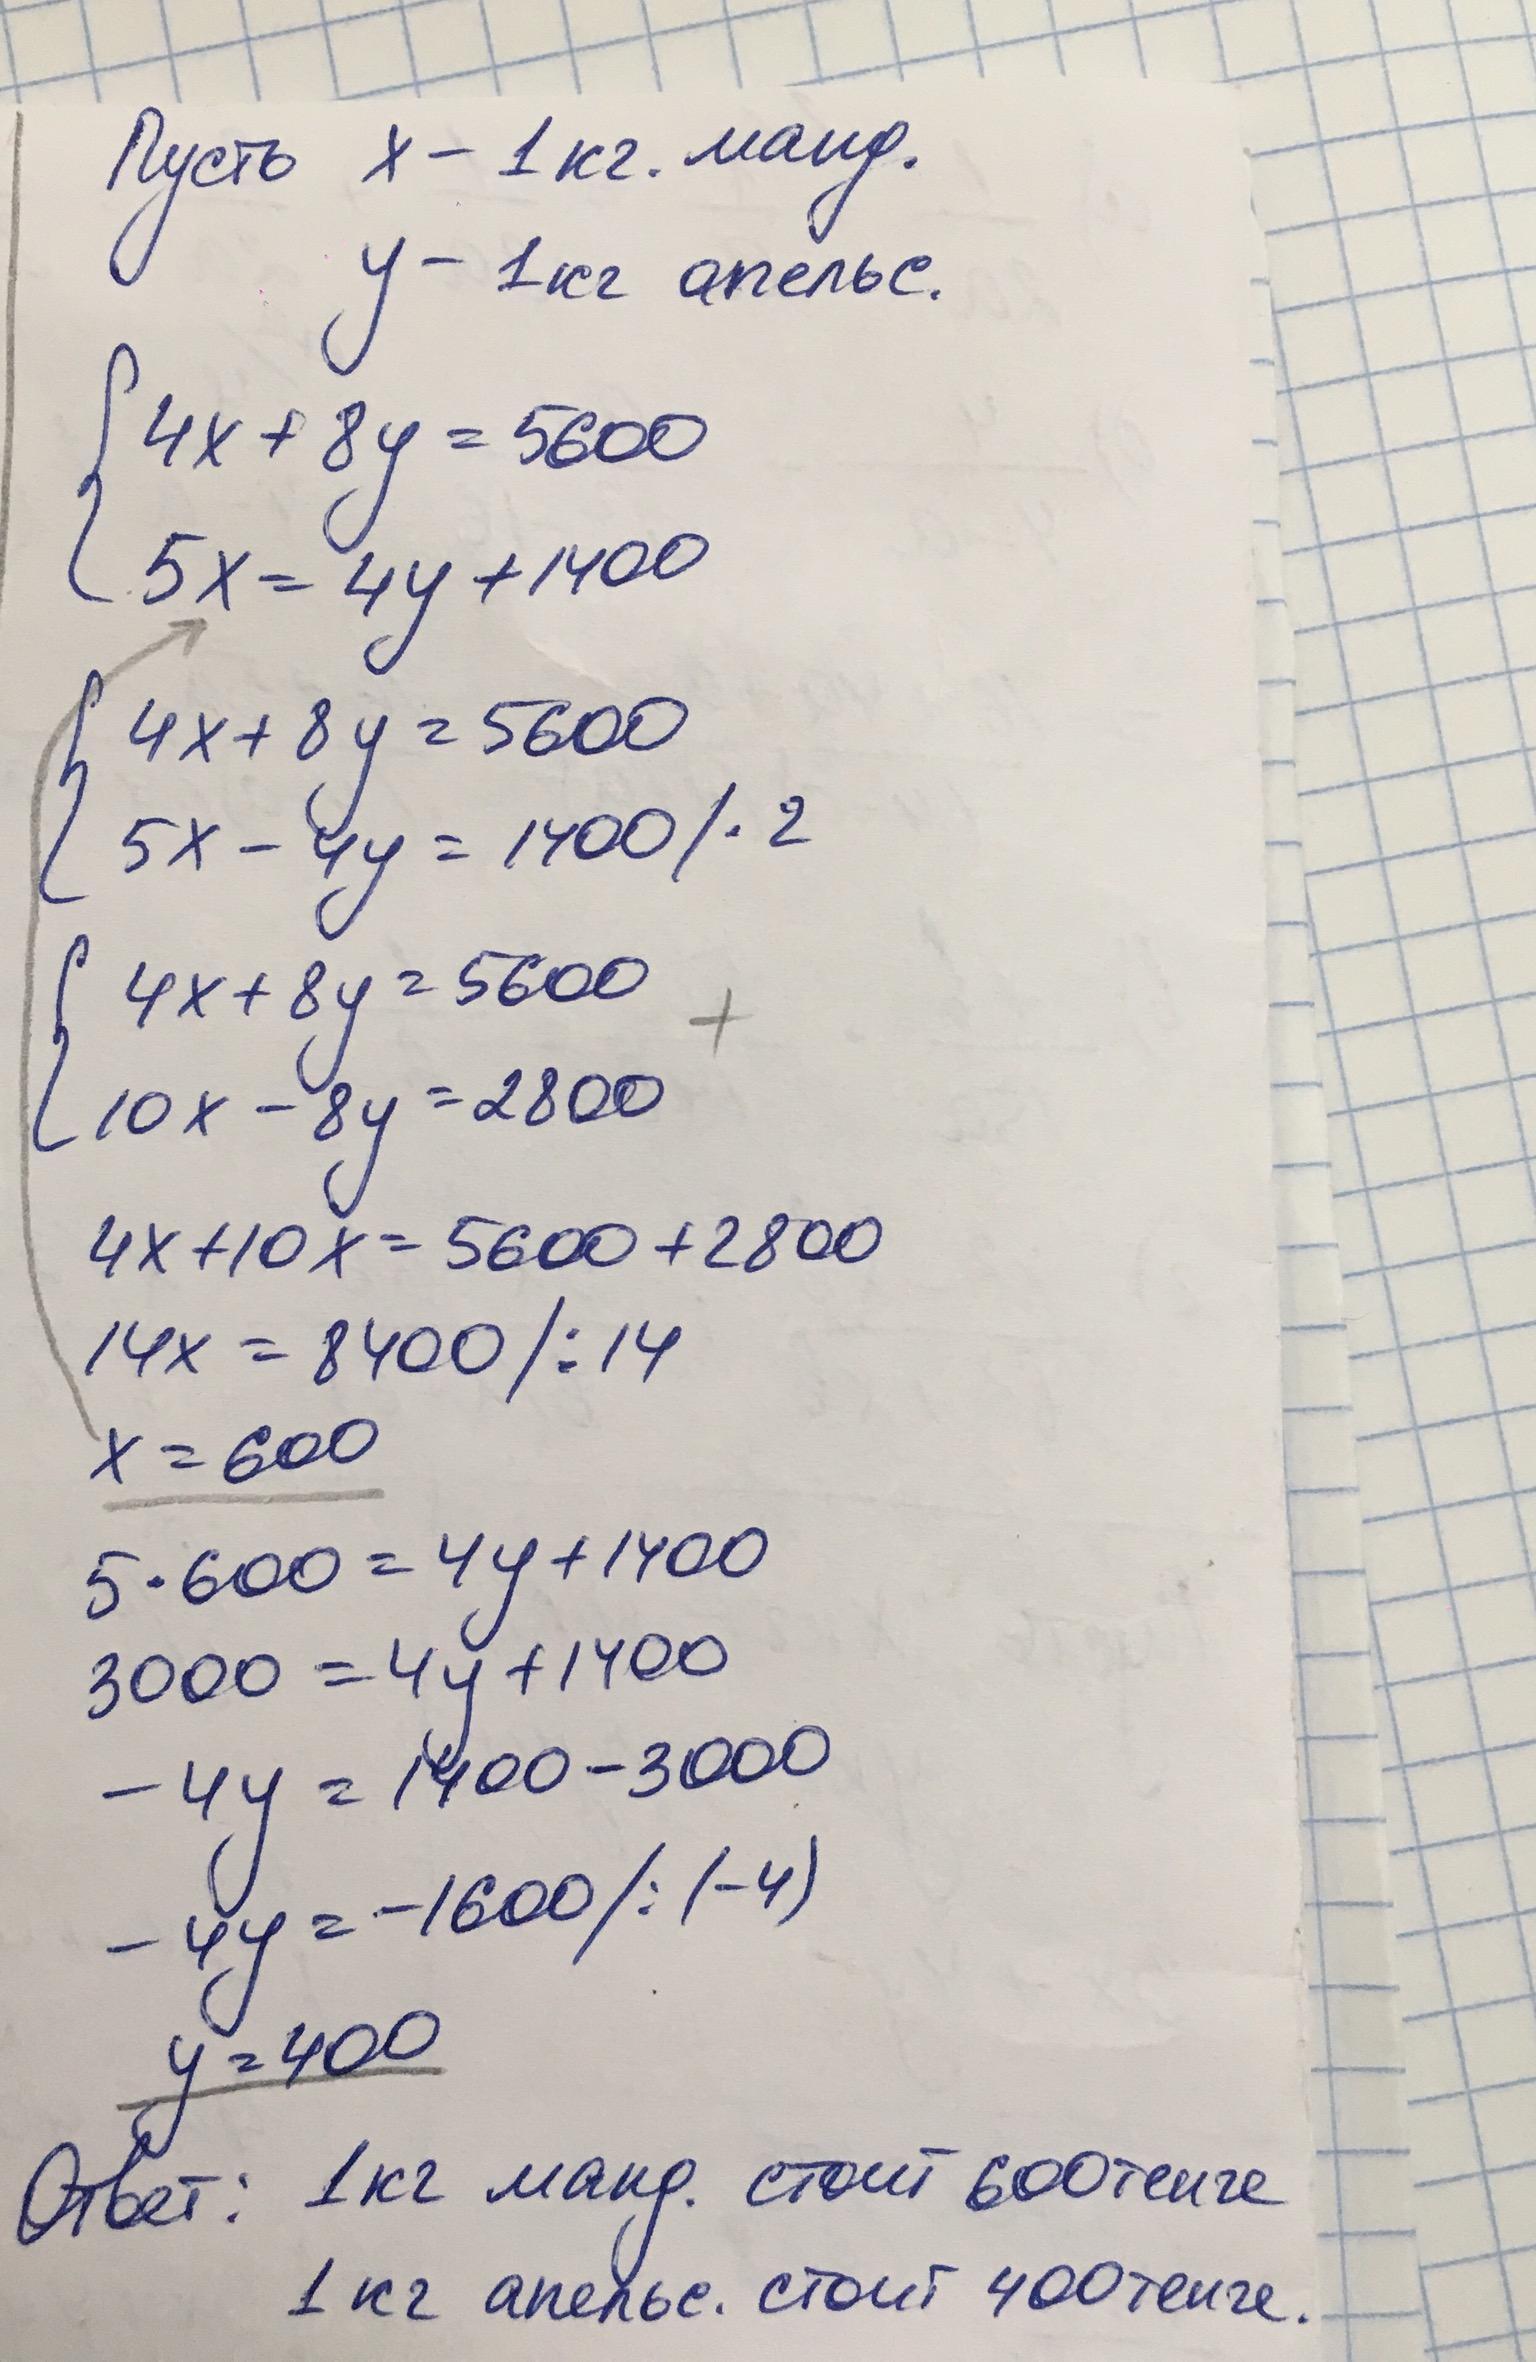 Пусть x – 1кг. манд.
y – 1кг апельс.
4x + 8y = 5600
5x = 4y + 1400
4x + 8y = 5600
5x – 4y = 1400 /· 2
4x + 8y = 5600
+
10x – 8y = 2800
4x + 10x = 5600 + 2800
14x = 8400 /: 14
x = 600
5 · 600 = 4y + 1400
3000 = 4y + 1400
– 4y = 1400 – 3000
– 4y = –1600 /: (–4)
y = 400
Ответ: 1кг манд. стоит 600тенге
1кг апельс. стоит 400тенге.